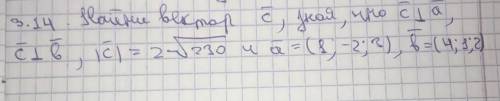 3.14. Найти вектор c̄, зная, что c̄⊥a,
c̄⊥b̄, |c̄| = 2√230 и a = (3, -2; 2), b̄ = (4; 3; 2)